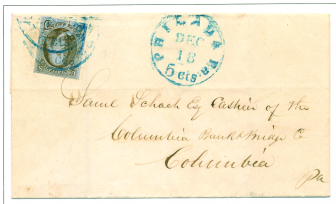 PHILADA Pa.
DEC
18
5 cts
Saml Schoch Esq Cashier of the
Columbia Bank & Bridge Co
Columbia
Pa